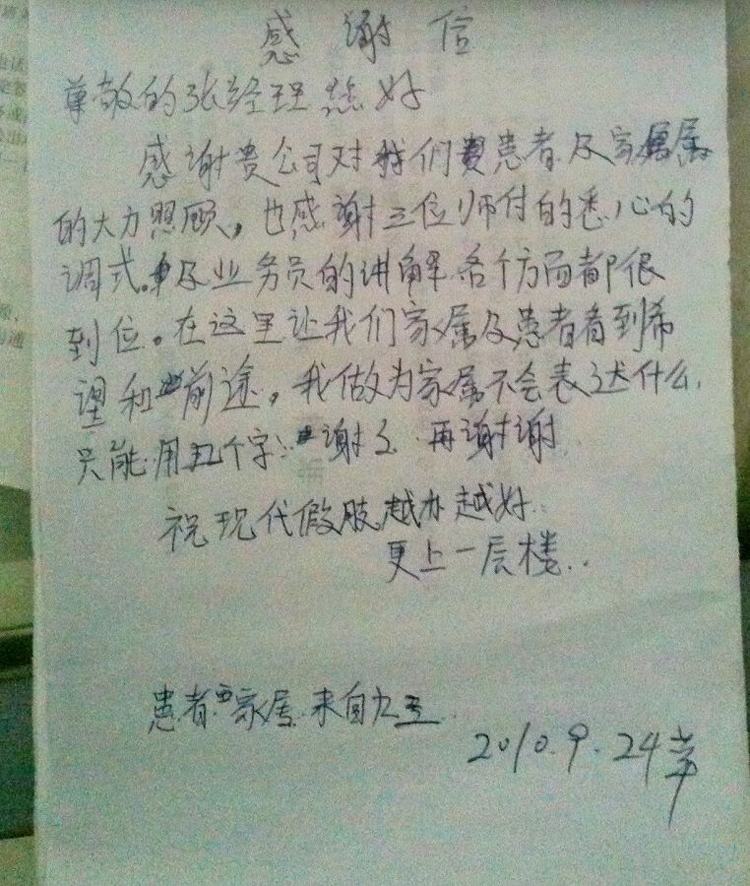 感谢信
尊敬的张经理您好
感谢贵公司对我们患者及家属
的大力照顾。也感谢三位师付的悉心的
调式。及业务员的讲解.各个方面都很
到位。在这里让我们家属及患者看到希
望和前途。我做为家属不会表达什么.
只能用五个字:谢了.再谢谢.
祝现代假肢越办越好..
更上一层楼..
患者家属.来自九
2010.9.24